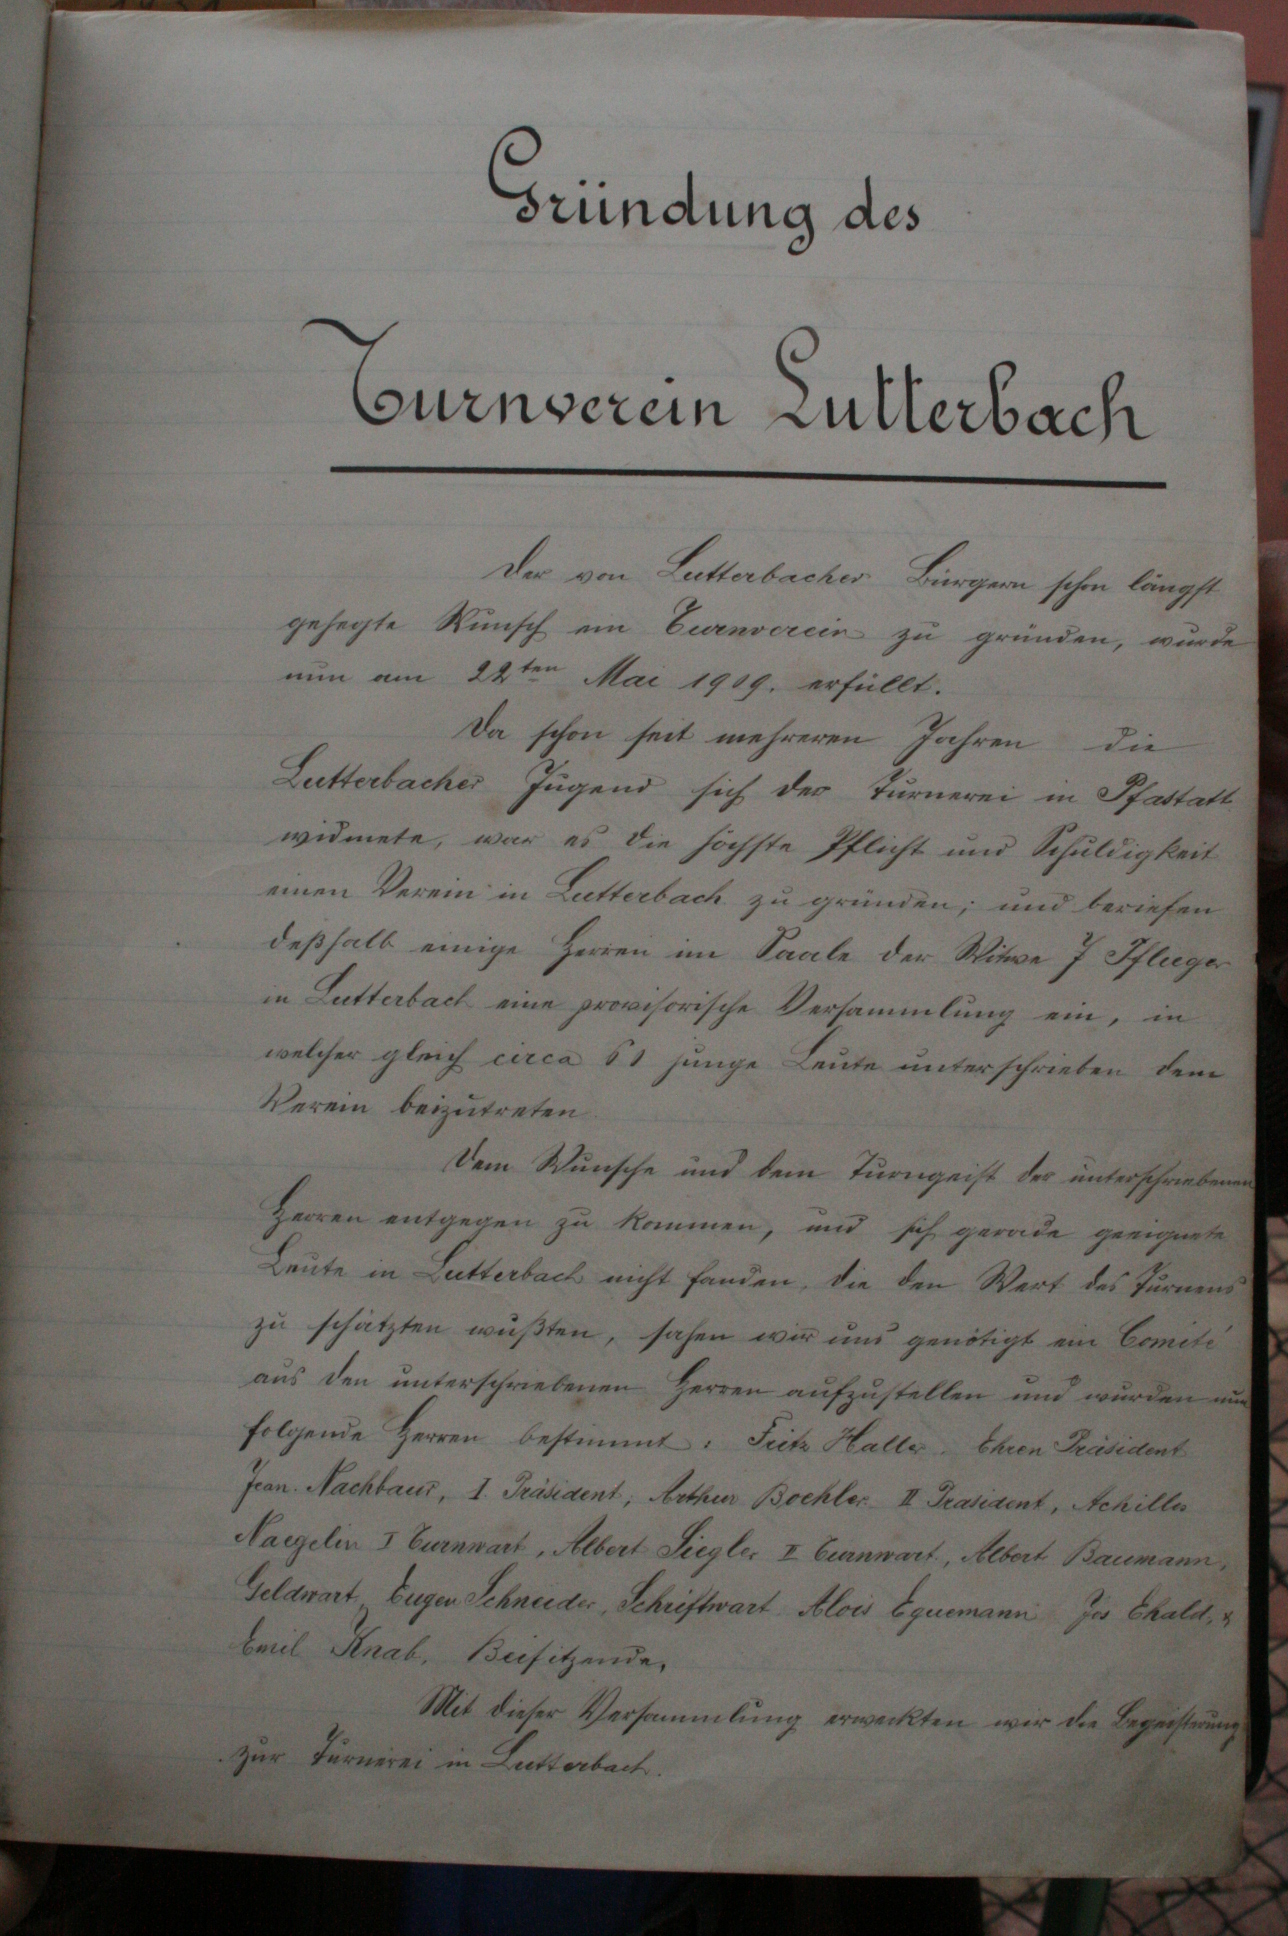 Gründung des
Turnverein Lutterbach
Der von Lutterbacher Bürgern schon längst
gehegte Wunsch ein Turnverein zu gründen, wurde
nun am 22ten Mai 1909. erfüllt.
Da schon seit mehreren Jahren die
Lutterbacher Jugend sich der Turnerei in Pfastatt
widmete, war es die höchste Pflicht und Schuldigkeit
einen Verein in Lutterbach zu gründen; und beriefen
deßhalb einige Herren im Saale der Witwe J Pflueger
in Lutterbach eine provisorische Versammlung ein, in
welcher gleich circa junge Leute unterschrieben dem
Verein beizutreten
Dem Wunsche und dem Turngeist der unterschriebenen
Herren entgegen zu kommen, und sich gerade geeignete
Leute in Lutterbach nicht fanden, die den Wert des Turnens
zu schätzten wußten, sahen wir uns genötigt ein Comité
aus den unterschriebenen Herren aufzustellen und wurden nun
folgende Herren bestimmt: Fritz Haller. Ehren Präsident
Jean. Nachbaur, I. Präsident, Arthur Boehler II Präsident, Achilles
Naegelin I Turnwart, Albert Siegler II Turnwart, Albert Baumann,
Geldwart, Eugen Schneider, Schriftwart Alois Equemann Jos Ehald, &
Emil Knab, Beisitzende,
Mit dieser Versammlung erweckten wir die Begeisterung
zur Turnerei in Lutterbach.